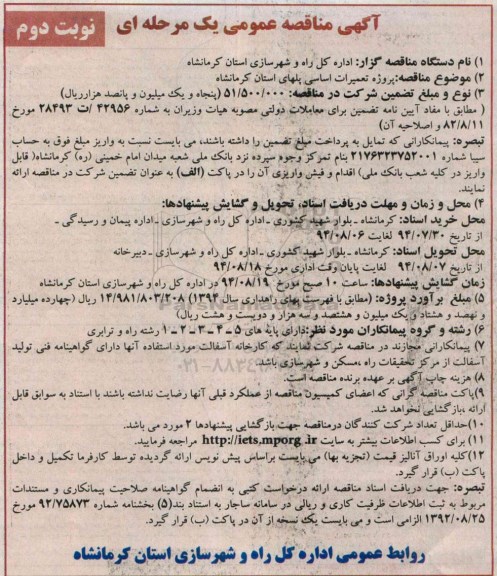 آگهی مناقصه عمومی یک مرحله ای
نوبت دوم
۱) نام دستگاه مناقصه گزار: اداره کل راه و شهرسازی استان کرمانشاه
۲) موضوع مناقصه:پروژه تعمیرات اساسی پلهای استان کرمانشاه
۳) نوع و مبلغ تضمین شرکت در مناقصه: ۵۱/۵۰۰/۰۰۰ (پنجاه و یک میلیون و پانصد هزارریال)
( مطابق با مفاد آیین نامه تضمین برای معاملات دولتی مصوبه هیات وزیران به شماره ۴۲۹۵۶ /ت ۲۸۴۹۳ مورخ
۸۲/۸/۱۱ و اصلاحیه آن)
تبصره: پیمانکارانی که تمایل به پرداخت مبلغ تضمین را داشته باشند، می بایست نسبت به واریز مبلغ فوق به حساب
سیبا شماره ۲۱۷۶۴۲۳۷۵۲۰۰۱ بنام تمرکز وجوه سپرده نزد بانک ملی شعبه میدان امام خمینی (ره) کرمانشاه( قابل
واریز در کلیه شعب بانک ملی) اقدام و فیش واریزی آن را در پاکت (الف) به عنوان تضمین شرکت در مناقصه ارائه
نمایند.
۴) محل و زمان و مهلت دریافت اسناد، تحویل و گشایش پیشنهادها:
محل خرید اسناد: کرمانشاه ـ بلوار شهید کشوری ـ اداره کل راه و شهرسازی ـ اداره پیمان و رسیدگی ـ
از تاریخ ۹۴/۰۷/۳۰ لغایت ۹۴/۰۸/۰۶
محل تحویل اسناد: کرمانشاه ـ بلوار شهید کشوری ـ اداره کل راه و شهرسازی ـ دبیرخانه
از تاریخ ۹۴/۰۸/۰۷ لغایت پایان وقت اداری مورخ ۹۴/۰۸/۱۸
زمان گشایش پیشنهادها: ساعت ۱۰ صبح مورخ ۹۴/۰۸/۱۹ در اداره کل راه و شهرسازی استان کرمانشاه
۵) مبلغ برآورد پروژه: (مطابق با فهرست بهای راهداری سال ۱۳۹۴) ۱۴/۹۸۱/۸۰۳/۲۰۸ ریال (چهارده میلیارد
و نهصد و هشتاد و یک میلیون و هشتصد و سه هزار و دویست و هشت ریال)
۶) رشته و گروه پیمانکاران مورد نظر:دارای پایه های ۵ ـ ۴ ـ ۳ ـ ۲ ـ ۱ رشته راه و ترابری
۷) پیمانکارانی مجازند در مناقصه شرکت نمایند که کارخانه آسفالت مورد استفاده آنها دارای گواهینامه فنی تولید
آسفالت از مرکز تحقیقات راه ،مسکن و شهرسازی باشد.
۸) هزینه چاپ آگهی بر عهده برنده مناقصه است.
۹)پاکت مناقصه گرانی که اعضای کمیسیون مناقصه از عملکرد قبلی آنها رضایت نداشته باشند با استناد به سوابق قابل
ارائه ،بازگشایی نخواهد شد.
۱۰)حداقل تعداد شرکت کنندگان درمناقصه جهت بازگشایی پیشنهادها ۲ مورد می باشد.
۱۱) برای کسب اطلاعات بیشتر به سایت http://iets.mporg.ir مراجعه فرمایید.
۱۲)کلیه اوراق آنالیز قیمت (تجزیه بها) می بایست براساس پیش نویس ارائه گردیده توسط کارفرما تکمیل و داخل
پاکت (ب) قرار گیرد.
تبصره: جهت دریافت اسناد مناقصه ارائه درخواست کتبی به انضمام گواهینامه صلاحیت پیمانکاری و مستندات
مربوط به ثبت اطلاعات ظرفیت کاری و ریالی در سامانه ساجار به استناد بند(۵) بخشنامه شماره ۹۲/۷۵۸۷۳ مورخ
۱۳۹۲/۰۸/۲۵ الزامی است و می بایست یک نسخه از آن در پاکت (ب) قرار گیرد.
روابط عمومی اداره کل راه و شهرسازی استان کرمانشاه